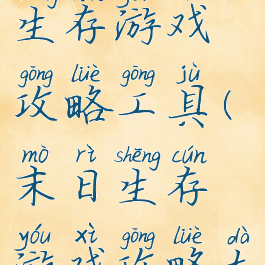 生存游戏
gōng lüè gōng jù
攻略工具(
mò rì shēng cún
末日生存
yóu xì gōng lüè dà
游戏攻略大